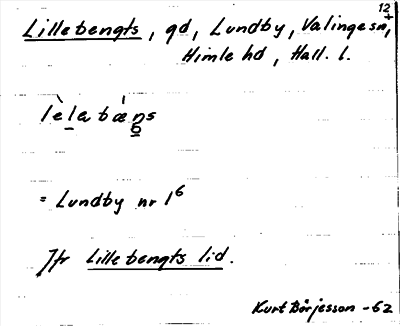 12
Lillebengts, gd, Lundby, Valinge sn,
Himle hd, Hall. l.
= Lundby nr 1⁶
Jfr Lillebengts lid.
Kurt Börjesson -62